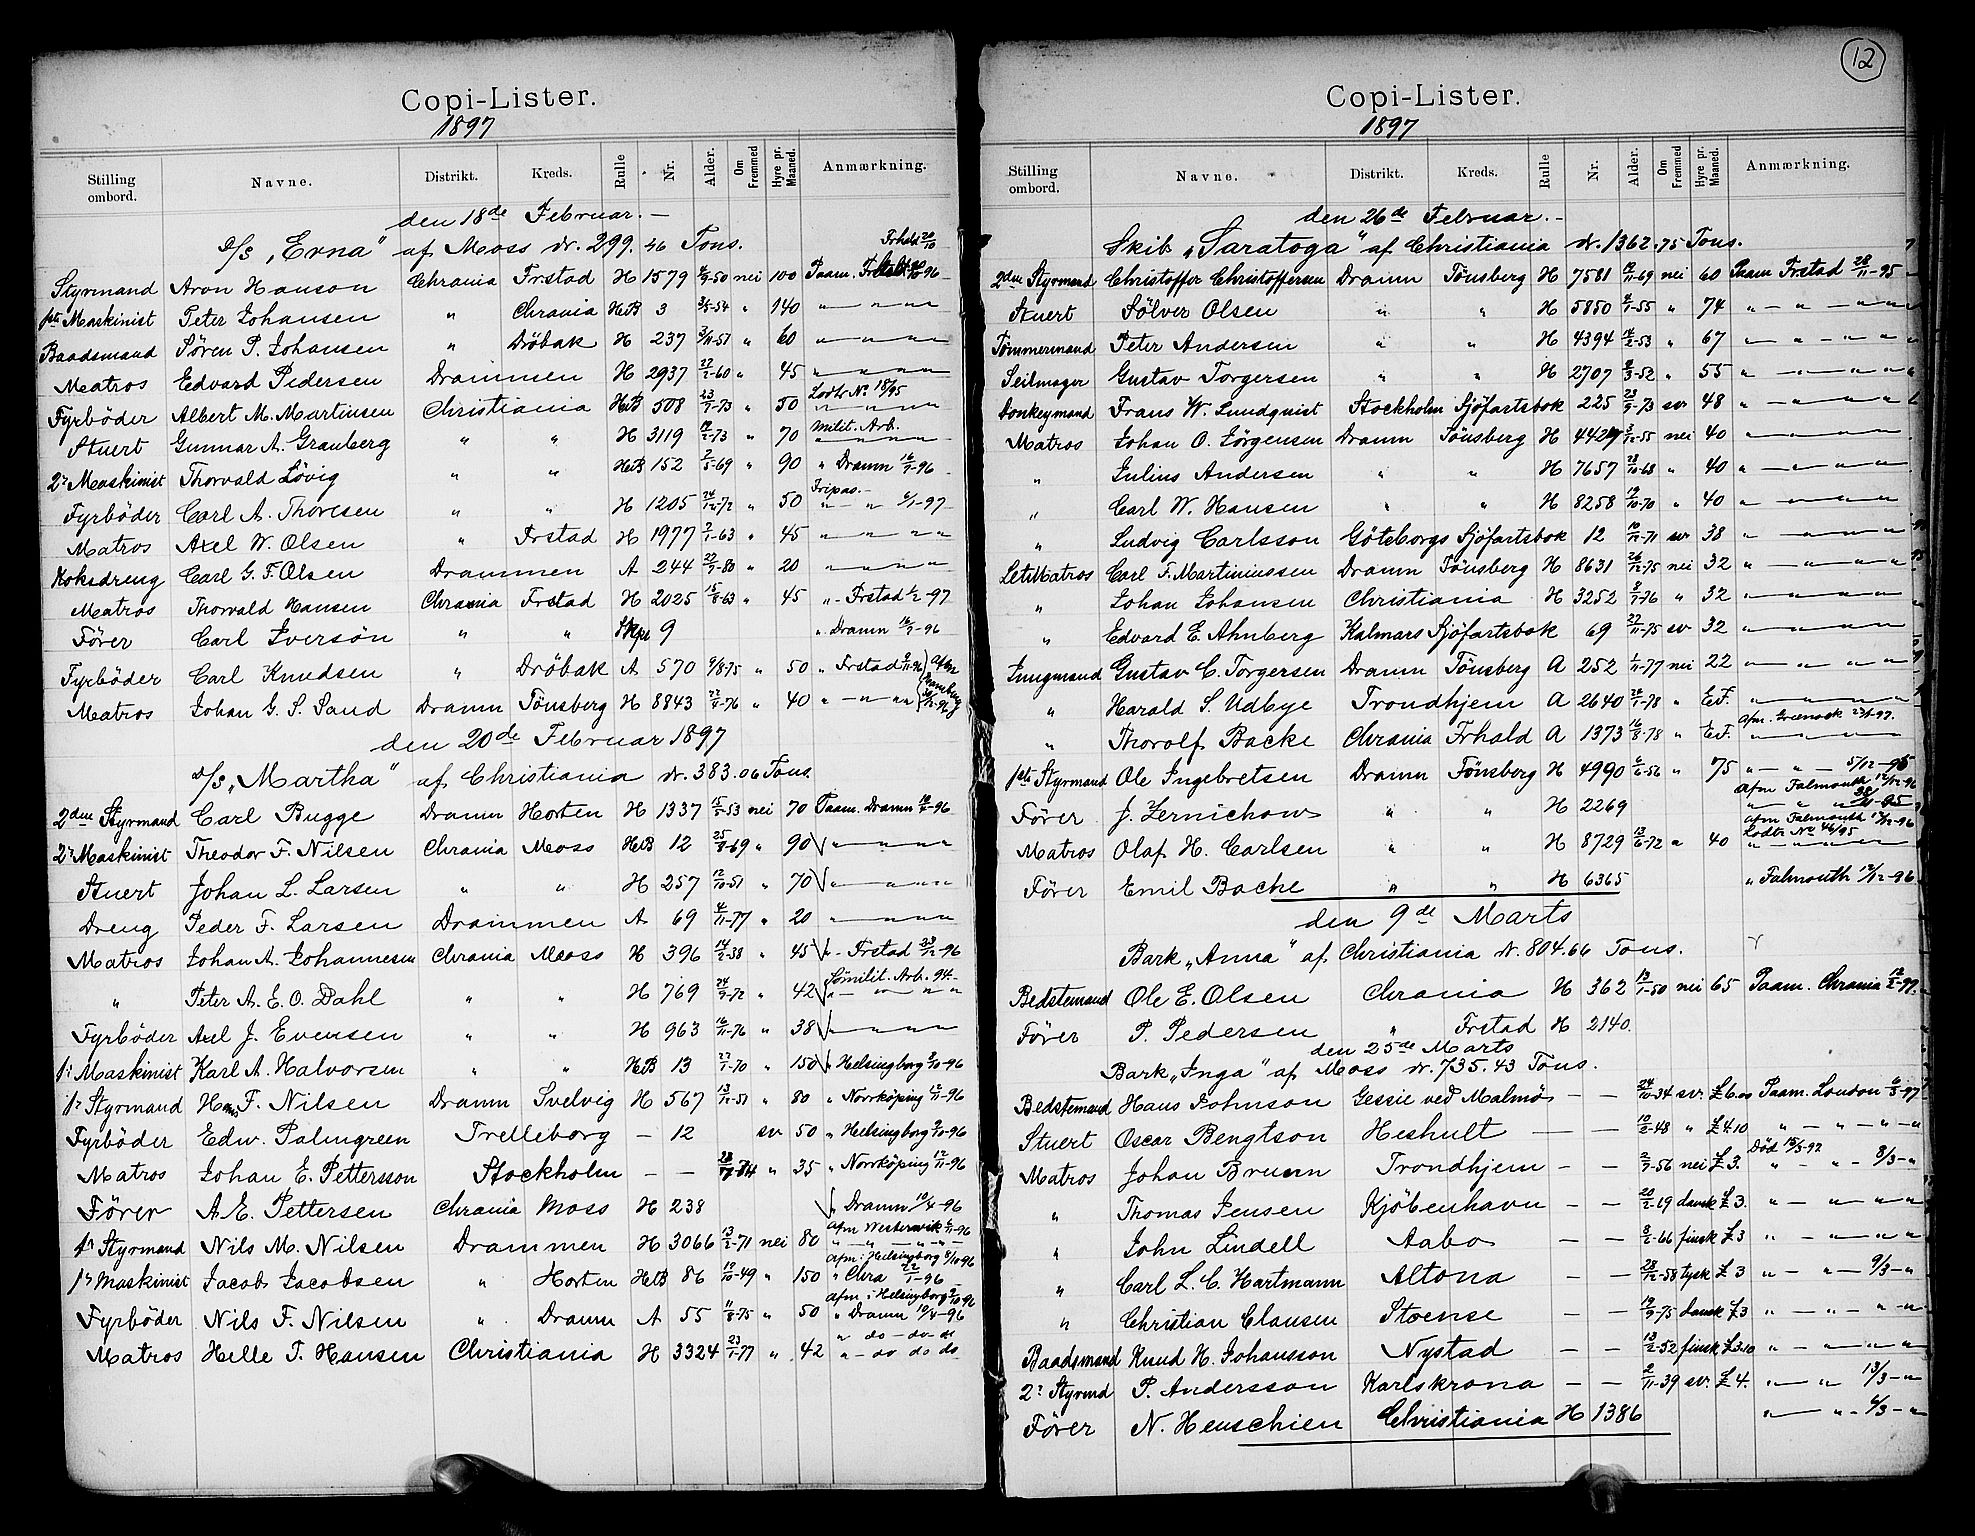 Copi-Lister.
1897
Stilling ombord. Navne. Distrikt. Kreds. Rulle Nr. Alder. Om Fremmed Hyre pr. Maaned. Anmærkning.
den 18de Februar. —
D/S „Erna“ af Moss dr. 299.46 Tons. Frhald 20/10
Styrmand Aron Hanson Chrania Frstad H 1579 -50 nei 100 Paam. -96
1ste Maskinist Peter Johansen „ Chrania HB 3 3/5-54 „ 140 „ — „ — „
Baadsmand Sören P. Johansen „ Dröbak H 237 3/11-51 „ 60 „ — „ — „
Matros Edvard Pedersen Drammen H 2937 22/2-60 „ 45 „ — „ — „
Lods No 18/95
Fyrböder Albert M. Martinsen Christiania HB 508 23/7-73 „ 50 „ — „ — „
Milit. Arb.
Stuert Gunnar A. Granberg „ „ H 3119 19/2-73 „ 70 „ — „ — „
2r Maskinist Thorvald Lövig „ „ HB 152 2/5-69 „ 90 „ Dramn 16/9-96
Fripas. —
Fyrböder Carl A. Thoresen „ „ H 1205 24/12-72 „ 50 „ — „ 6/1-97
Matros Axel W. Olsen „ Frstad H 1977 2/1-63 „ 45 „ — „ — „
Koksdreng Carl G. F. Olsen Drammen A 244 22/7-80 „ 20 „ — „ — „
Matros Thorvald Hansen Chrania Frstad H 2025 15/8-63 „ 45 „ - Frstad 1/2-97
Förer Carl Iversön „ „ Skpr 9 „ Dramn 16/9-96
Fyrböder Carl Knudsen „ Dröbak A 570 9/8-75 „ 50 „ Frstad 9/11-96 Afm
Matros Johan G. S. Sand Dramn Tönsberg H 8843 22/4-76 „ 40 „ — „ — „ Hamburg
den 20de Februar 1897
D/S „Martha“ af Christiania dr. 383.06 Tons.
2den Styrmand Carl Bugge Dramn Horten H 1337 15/5-53 nei 70 Paam. Dramn -96
2r Maskinist Theodor F. Nilsen Chrania Moss HB 12 25/9-69 „ 90 „ — „ — „
Stuert Johan L. Larsen „ „ H 257 12/10-51 „ 70 „ — „ — „
Dreng Peder F. Larsen Drammen A 69 4/11-77 „ 20 „ — „ — „
Matros Johan A. Johannesen Chrania Moss H 396 14/2-58 „ 45 „ - Frstad 23/12-96
Sömilit. Arb. 94.
„ Peter A. E. O. Dahl „ „ H 769 24/9-72 „ 42 „ — „ — „
Fyrböder Axel J. Evensen „ „ H 963 16/11-76 „ 38 „ — „ — „
1r Maskinist Karl A. Halvorsen „ „ HB 13 27/7-70 „ 150 „ Helsingborg 9/10-96
1r Styrmand Hans F. Nilsen Dramn Svelvig H 567 13/11-51 „ 80 „ Norrköping 12/11-96
Fyrböder Edw. Palmgreen Trelleborg — 12 sv 50 „ Helsingborg 9/10-96
Matros Johan E. Pettersson Stockholm — — „ 35 „ Norrköping 12/11-96
Förer A. E. Pettersen Chrania Moss H 238 „ Dramn 10/4-96
Afm Westervik 6/11-96
1r Styrmand Nils M. Nilsen Drammen H 3066 13/2-71 nei 80 „ — „ — „
Afm i Helsingborg 8/10-96
1r Maskinist Jacob Jacobsen „ Horten HB 86 19/10-49 „ 150 „ Chra 22/1-96
Afm i Helsingborg 9/10-96
Fyrböder Nils F. Nilsen „ Dramn A 55 11/8-75 „ 50 „ Dramn 10/4-96
„ do - do - do
Matros Helle T. Hansen Christiania H 3324 23/1-77 „ 42 „ - do do do
12
Copi-Lister.
1897
Stilling ombord. Navne. Distrikt. Kreds. Rulle Nr. Alder. Om Fremmed Hyre pr. Maaned. Anmærkning.
den 26de Februar. —
Skib „Saratoga“ af Christiania dr. 1362.75 Tons.
2den Styrmand Christoffer Christoffersen Dramn Tönsberg H 7581 19/11-69 nei 60 Paam Frstad 28/11-95
Stuert Sölver Olsen „ „ H 5850 2/1-55 „ 74 „ — „ — „
Tömmermand Peter Andersen „ „ H 4394 14/2-53 „ 67 „ — „ — „
Seilmager Gustav Torgersen „ „ H 2707 2/3-52 „ 55 „ — „ — „
Donkeymand Frans W. Lundquist Stockholm Sjöfartsbok 225 23/9-73 sv 48 „ — „ — „
Matros Johan O. Jörgensen Dramn Tönsberg H 4427 3/12-55 nei 40 „ — „ — „
„ Julius Andersen „ „ H 7657 28/10-68 „ 40 „ — „ — „
„ Carl W. Hansen „ „ H 8258 19/10-70 „ 40 „ — „ — „
„ Ludvig Carlsson Göteborgs Sjöfartsbok 12 10/11-71 sv 38 „ — „ — „
LetMatros Carl F. Martiniussen Dramn Tönsberg H 8631 26/12-75 nei 32 „ — „ — „
„ Johan Johansen Christiania H 3252 9/7-76 „ 32 „ — „ — „
„ Edvard E. Ahnberg Kalmars Sjöfartsbok 69 27/11-75 sv 32 „ — „ — „
Jungmand Gustav C. Torgersen Dramn Tönsberg A 252 1/11-77 nei 22 „ — „ — „
„ Harald S. Udbye Trondhjem A 2640 24/1-78 „ E.F. „ — „ — „
Afm. Greenock 23/1-97.
„ Thorolf Backe Chrania Frhald A 1373 16/8-78 „ E.F. „ — „ — „
1ste Styrmand Ole Ingebretsen Dramn Tönsberg H 4990 6/6-56 „ 75 „ — „ — 5/12-95
Afm Falmouth 12/12-96
Förer J. Zernichow „ „ H 2269 „ — „ — „ 28/11-95
Afm Falmouth 12/12-96
Lodts No 46/95
Matros Olaf H. Carlsen „ „ H 8729 13/6-72 „ 40 „ — „ — „
Förer Emil Backe „ „ H 6365 „ Falmouth 12/12-96
den 9de Marts
Bark „Anna“ af Christiania dr. 804.66 Tons.
Bedstemand Ole E. Olsen Chrania H 362 13/1-50 nei 65 Paam. Chrania 18/2-97.
Förer P. Pedersen „ Frstad H 2140.
den 25de Marts
Bark „Inga“ af Moss dr. 735.43 Tons.
Bedstemand Hans Johnson Gessie ved Malmö — — 24/10-34 sv. £ 6.00 Paam. London 6/3-97
Stuert Oscar Bengtson Heshult — — 12/2-48 „ £ 4.10 „ — „ — „
Död 15/3-97
Matros Johan Bruun Trondhjem — — 2/9-56 nei £ 3. „ — „ - 8/3-„
„ Thomas Jensen Kjöbenhavn — — 20/2-69 dansk £ 3. „ — „ — „
„ John Lindell Aabo — — 8/2-66 finsk £ 3 „ — „ — „
„ Carl L. C. Hartmann Altona — — 28/12-58 tysk £ 3 „ — „ - 9/3-„
„ Christian Clausen Stoense — — 19/9-75 dansk £ 3 „ — „ — „
Baadsmand Knud H. Johansson Nystad — — 13/2-52 finsk £ 3.10 „ — „ — „
2r Styrmd P. Andersson Karlskrona — — 2/11-39 sv. £ 4. „ — „ 13/3-„
Förer N. Henschien Christiania H 1386 „ — „ - 6/3-„